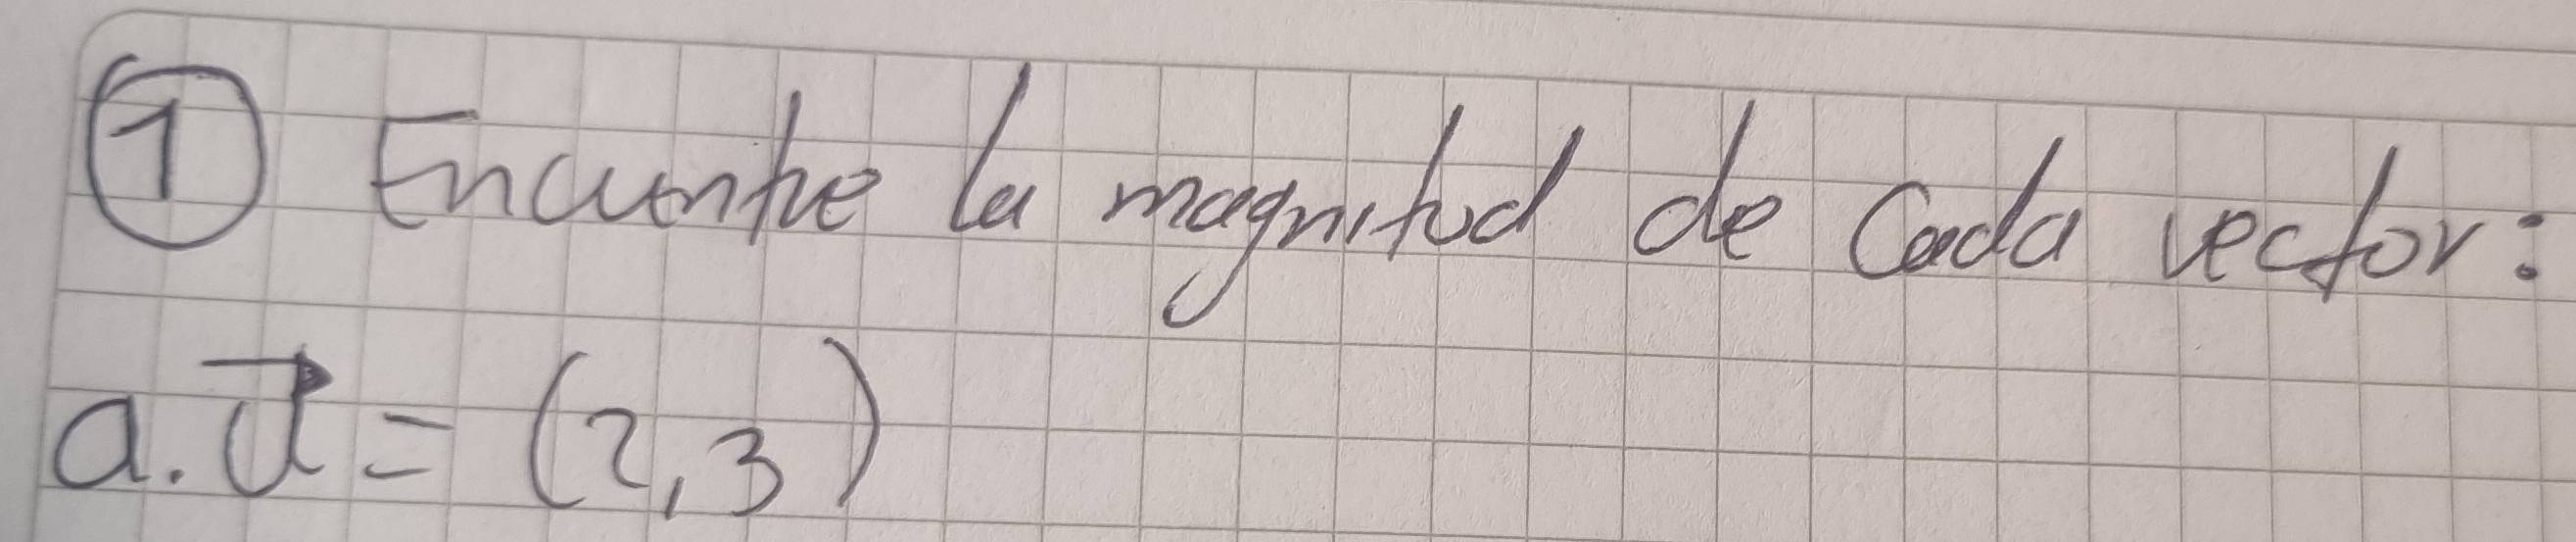 ① Encuentre la magnitud de Cada vector:
a. \vec{u} = (2,3)